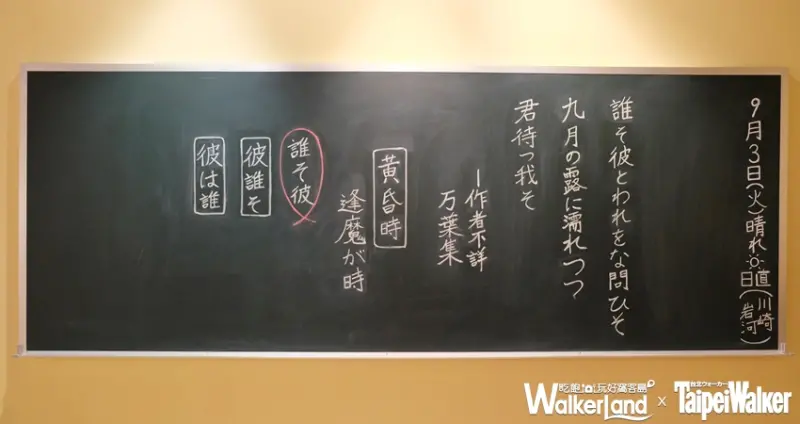 9月3日(火)晴れ
日直(川崎
岩河)
誰そ彼とわれをな問ひそ
九月の露に濡れつつ
君待つ我そ
ー作者不詳
万葉集
黄昏時
逢魔が時
誰そ彼
彼誰そ
彼は誰
吃飽 玩好窩客島
WalkerLand x 台北ウォーカー
TaipeiWalker